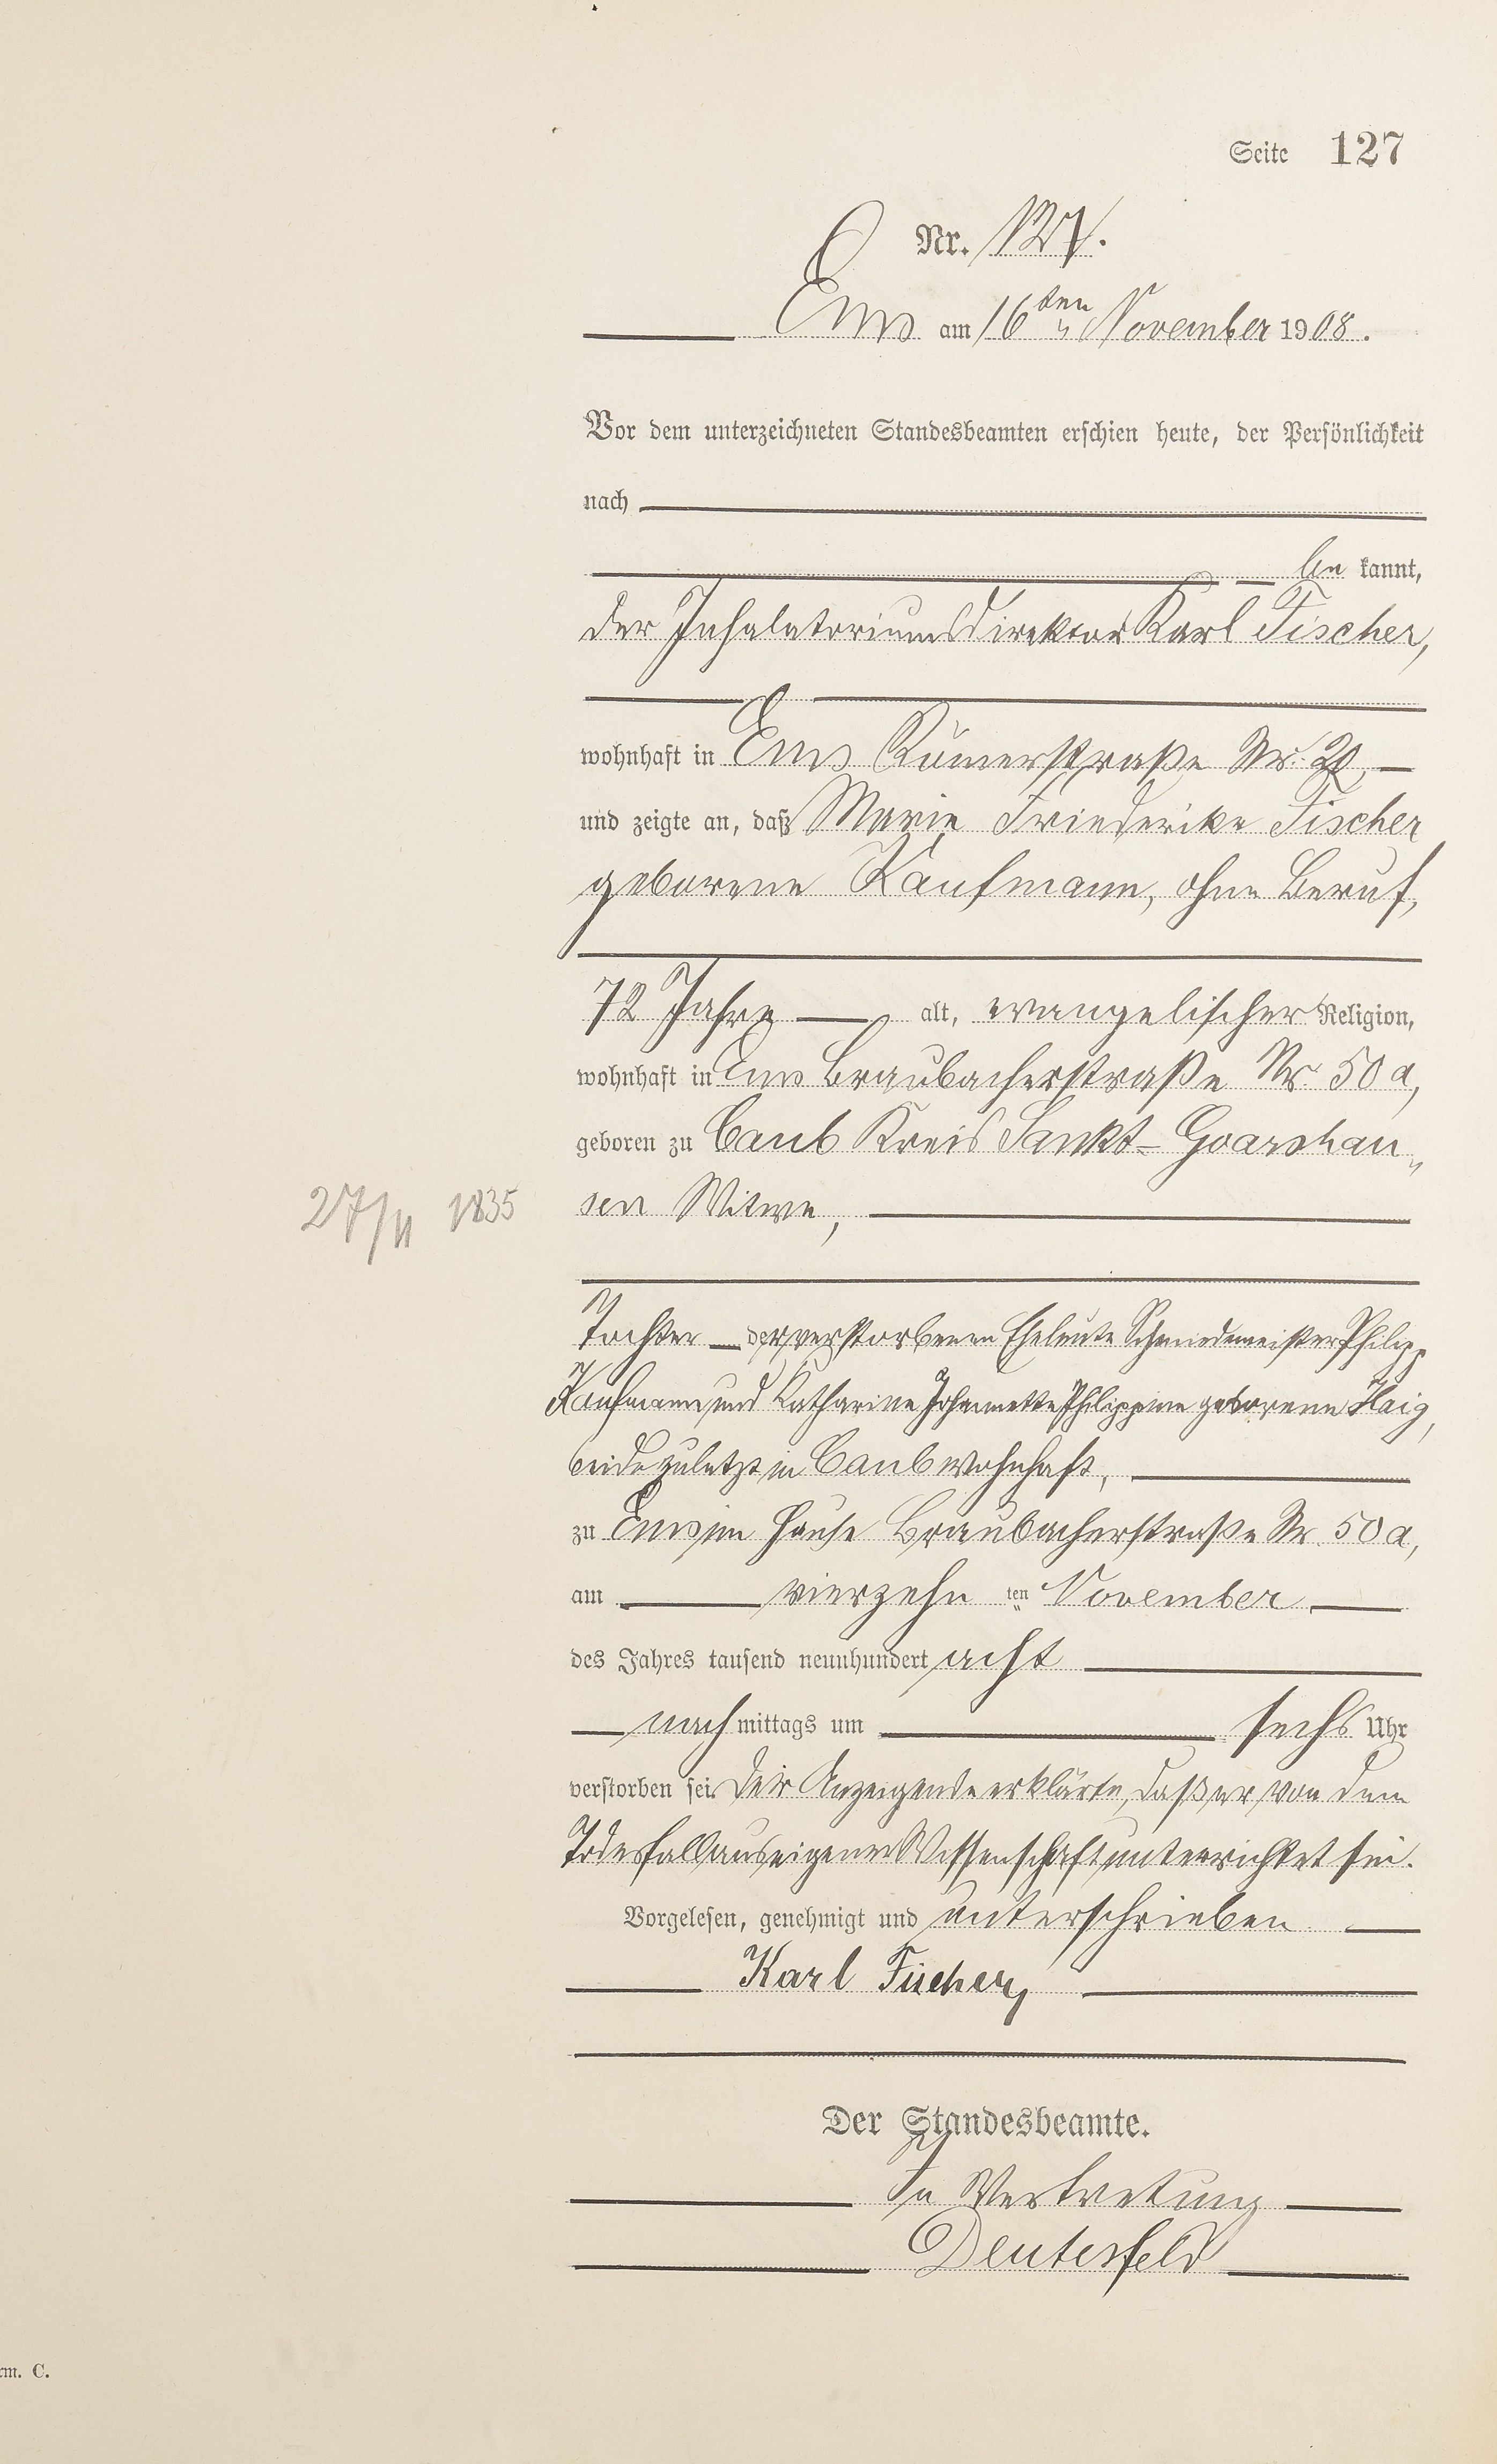 Seite 127
Nr. 127.
Ems am 16ten November 1908.
Vor dem unterzeichneten Standesbeamten erschien heute, der Persönlichkeit
nach
be kannt,
der Inhalatoriumsdirektor Karl Fischer,
wohnhaft in Ems Römerstraße Nr. 20
und zeigte an, daß Marie Friederike Fischer
geborene Kaufmann, ohne Beruf,
72 Jahre alt, evangelischer Religion,
wohnhaft in Ems Braubacherstraße Nr. 50 a,
geboren zu Caub Kreis Sankt-Goarshau„
27/11 1835 sen Witwe,
Tochter der verstorbenen Eheleute Schmiedemeister Philipp
Kaufmann und Katharine Johannette Philippine geborene
beide zuletzt in Caub wohnhaft,
zu Ems im Hause Braubacherstraße Nr. 50 a,
am vierzehn ten November
des Jahres tausend neunhundert acht
nach mittags um sechs Uhr
verstorben sei. Der Anzeigende erklärte, daß er von dem
Todesfall aus eigener Wissenschaft unterrichtet sei.
Vorgelesen, genehmigt und unterschrieben
Karl Fischer,
Der Standesbeamte.
In Vertretung
rm. C.